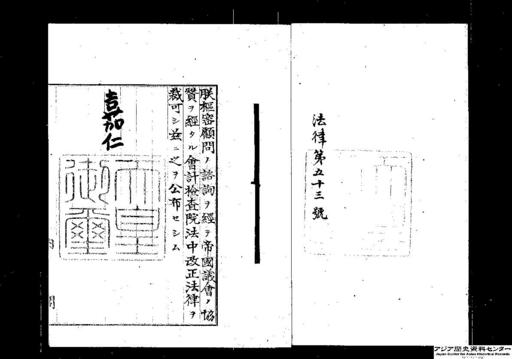 法律第五十三號
朕樞密顧問ノ諮詢ヲ經テ帝國議會ノ協
贊ヲ經タル會計檢査院法中改正法律ヲ
裁可シ茲ニ之ヲ公布セシム
嘉仁
天皇
御璽
アジア歴史資料センター
Japan Center for Asian Historical Records